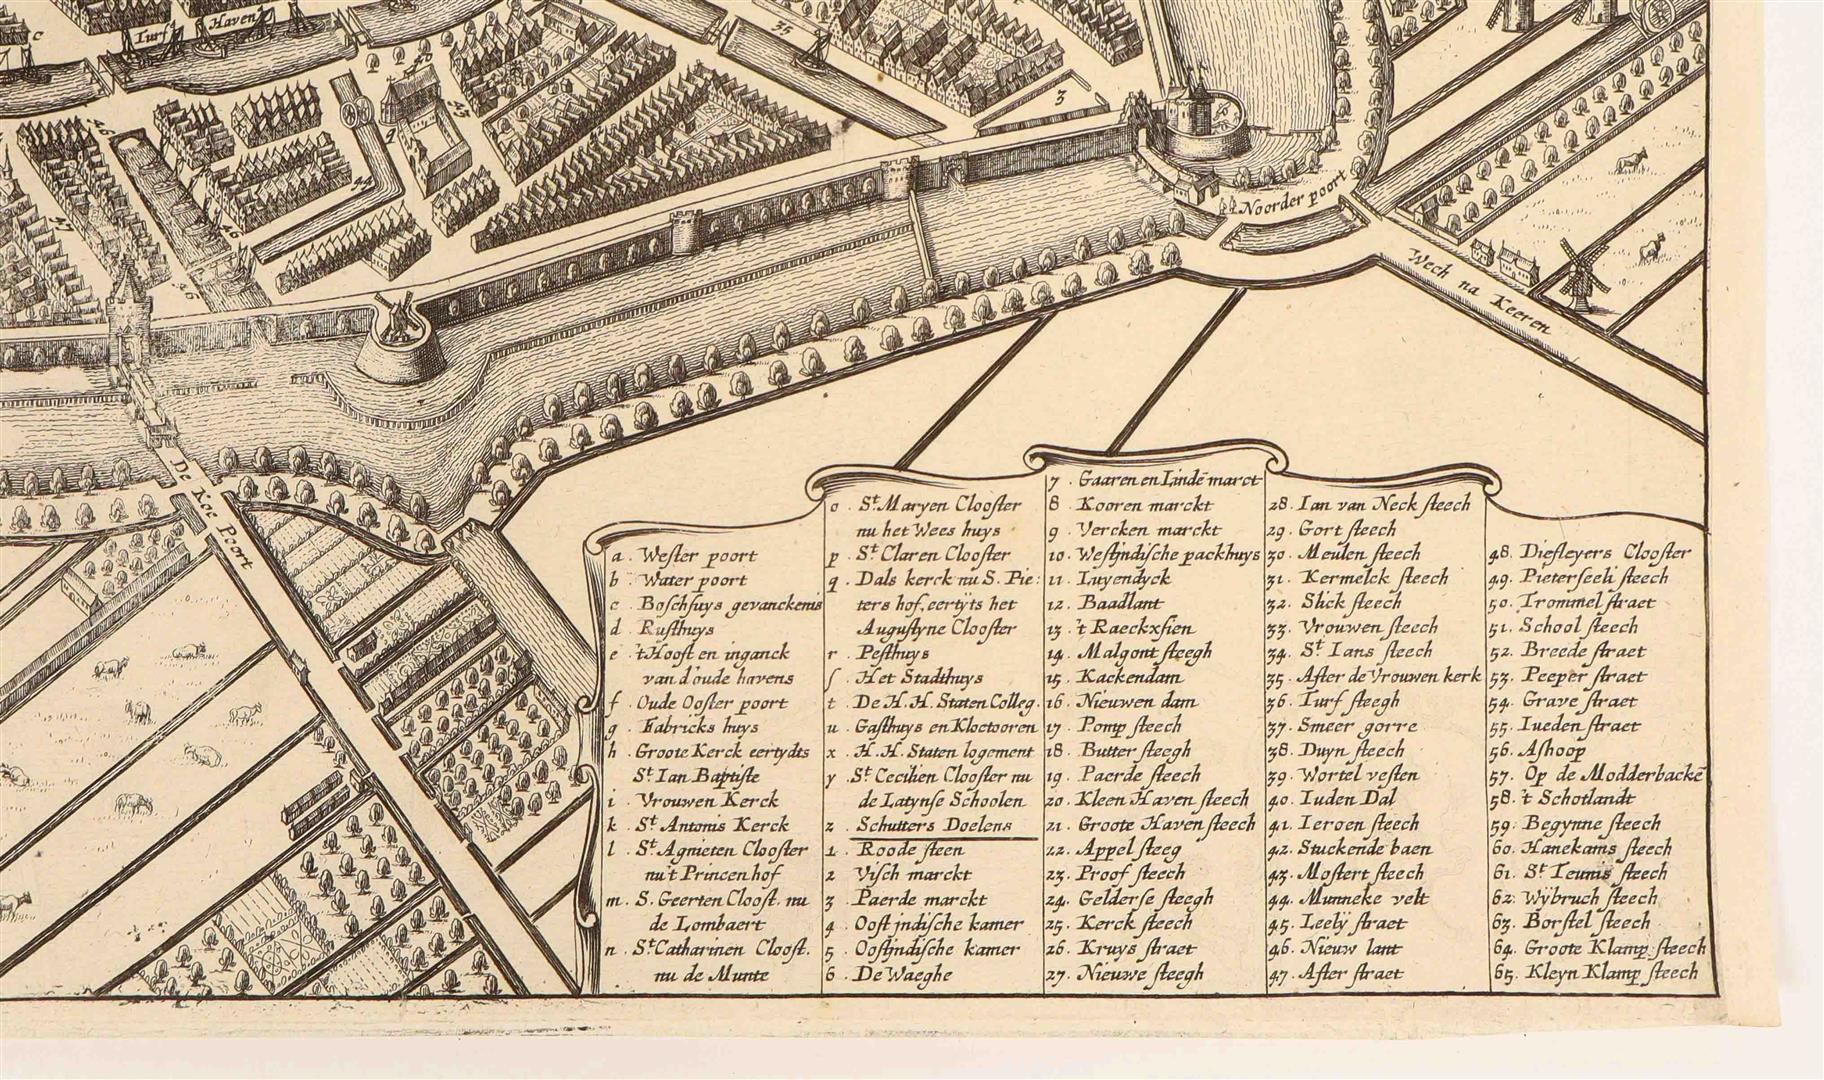 Haven
Turf
c
35
40
43
3
46
1
44
47
46
46
Noorder poort
Wech na Keeren
De Koe Poort
a . Wester poort
b . Water poort
c . Boschhuys gevanckenis
d . Rusthuys
e . 't Hooft en inganck
van d'oude havens
f . Oude Ooster poort
g . Fabricks huys
h . Groote Kerck eertydts
St Ian Baptiste
i . Vrouwen Kerck
k . St Antonis Kerck
l . St. Agnieten Clooster
nu't Princen hof
m . S. Geerten Cloost. nu
de Lombaert
n . St Catharinen Cloost.
nu de Munte
o . St. Maryen Clooster
nu het Wees huys
p . St Claren Clooster
q . Dals kerck nu S. Pie:
ters hof, eertyts het
Augustyne Clooster
r . Pesthuys
ſ . Het Stadthuys
t . De H. H. Staten Colleg.
u . Gasthuys en Kloctooren
x . H. H. Staten logement
y . St Cecilien Clooster nu
de Latynse Schoolen
z . Schutters Doelens
1 . Roode steen
2 . Visch marckt
3 . Paerde marckt
4 . Oost jndische kamer
5 . Oostjndische kamer
6 . De Waeghe
7 . Gaaren en Lindē marct
8 . Kooren marckt
9 . Vercken marckt
10 . Westjndische packhuys
11 . Luyendyck
12 . Baadlant
13 . 't Raeckxsien
14 . Malgont steegh
15 . Kackendam
16 . Nieuwen dam
17 . Pomp steech
18 . Butter steegh
19 . Paerde steech
20 . Kleen Haven steech
21 . Groote Haven steech
22 . Appel steeg
23 . Proof steech
24 . Gelderse steegh
25 . Kerck steech
26 . Kruys straet
27 . Nieuwe steegh
28 . Ian van Neck steech
29 . Gort steech
30 . Meulen steech
31 . Kermelck steech
32 . Slick steech
33 . Vrouwen steech
34 . St Ians steech
35 . After de Vrouwen kerk
36 . Turf steegh
37 . Smeer gorre
38 . Duyn steech
39 . Wortel vesten
40 . Iuden Dal
41 . Ieroen steech
42 . Stuckende baen
43 . Mostert steech
44 . Munneke velt
45 . Leely straet
46 . Nieuw lant
47 . After straet
48 . Diesleyers Clooster
49 . Pieterseeli steech
50 . Trommel straet
51 . School steech
52 . Breede straet
53 . Peeper straet
54 . Grave straet
55 . Iueden straet
56 . Ashoop
57 . Op de Modderbackē
58 . 't Schotlandt
59 . Begynne steech
60 . Hanekams steech
61 . St Teunis steech
62 . Wybruch steech
63 . Borstel steech
64 . Groote Klamp. steech
65 . Kleyn Klamp steech